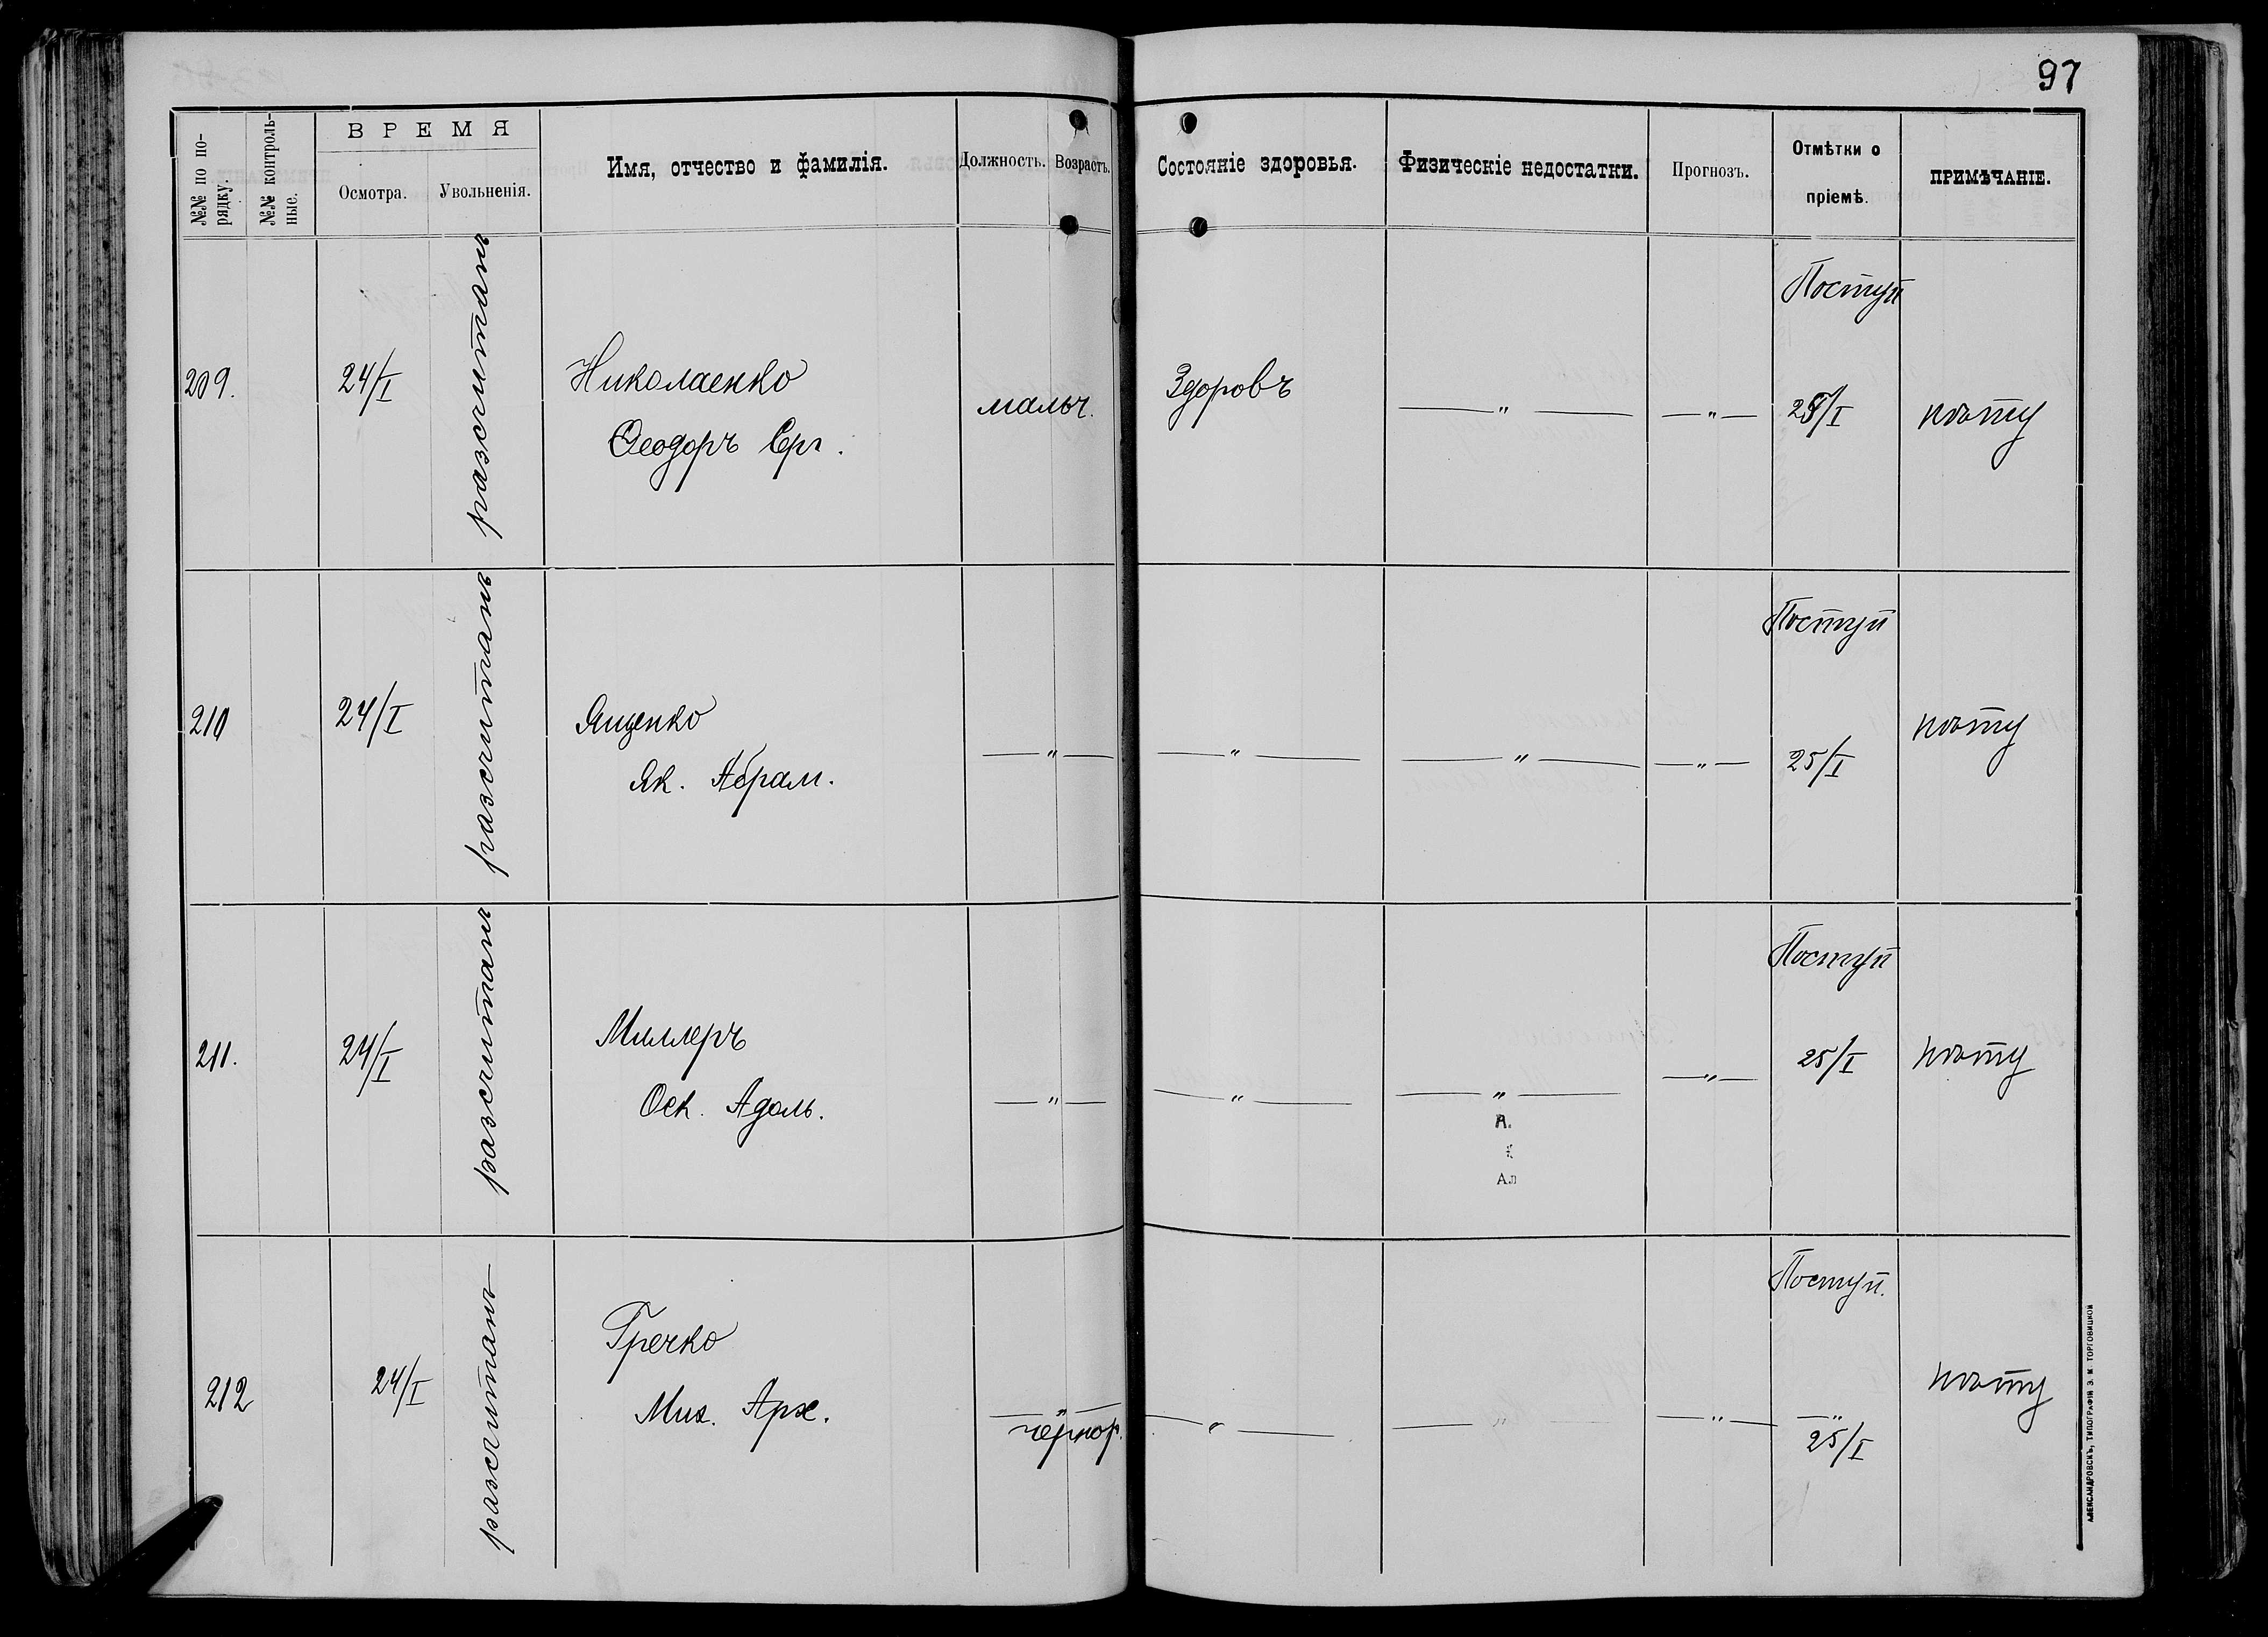 97
№№ по по-
рядку.
№№ контроль-
ные.
ВРЕМЯ
Осмотра.
Увольненія.
Имя, отчество и фамилія.
Должность.
Возрастъ.
Состояніе здоровья.
Физическіе недостатки.
Прогнозъ.
Отмѣтки о
пріемѣ.
ПРИМѢЧАНІЕ.
209.
24/I
разсчитанъ
Николаенко
Ѳеодоръ Ерг.
мальч.
Здоровъ
— " —
— " —
Поступ
25/I
210
24/I
разсчитанъ
Ященко
Як. Абрам.
— " —
— " —
— " —
— " —
Поступ
25/I
211.
24/I
разсчитанъ
Миллеръ
Оск. Адоль.
— " —
— " —
— " —
А.
Ал
— " —
Поступ
25/I
212
24/I
разсчитанъ
Гречко
Мих. Арх.
— " —
чернор.
— " —
— " —
— " —
Поступ.
— " —
25/I
АЛЕКСАНДРОВСКЪ, ТИПОГРАФІЯ Э. М. ТОРГОВИЦКОЙ